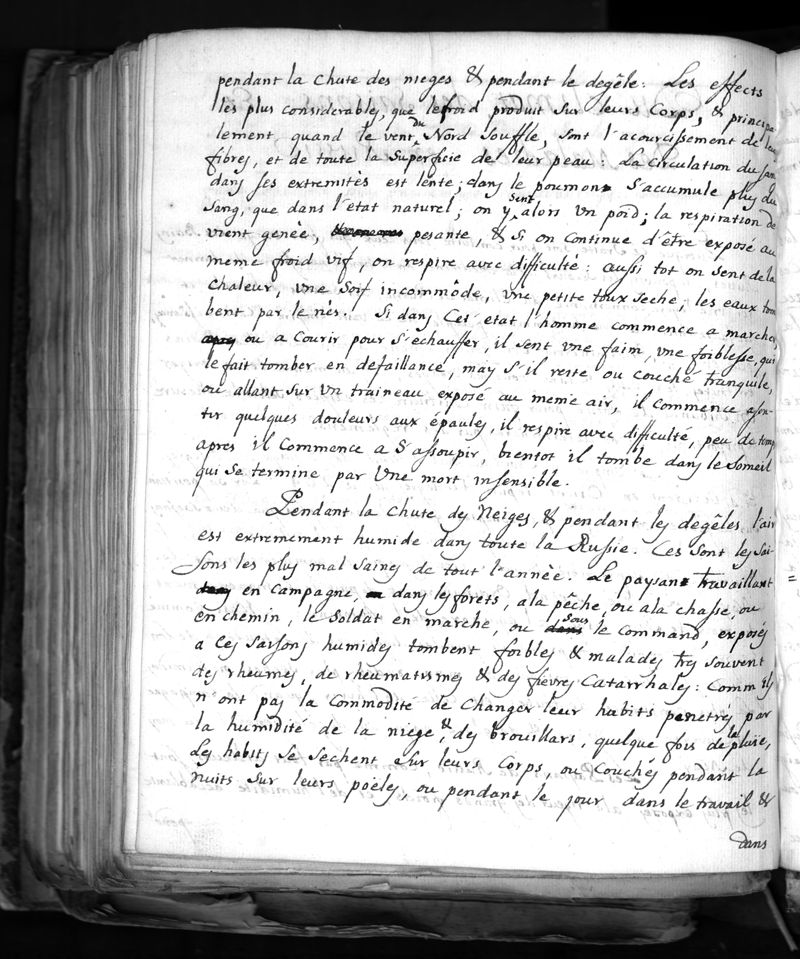 pendant la chute des nieges & pendant le degêle: Les effects
les plus considerables, que le froid produit sur leurs Corps, & principa
lement, quand le vent du Nord souffle, sont l'acourcissement de leurs
fibres, et de toute la superficie de leur peau: La circulation du san
dans ses extremitès est lente; dans le poumon s'accumule plus du
sang, que dans l'etat naturel; on y sent alors un poid; la respiration de
vient genèe, pesante, & si on continue d'être exposé au
meme froid vif, on respire avec difficulté: aussi tot on sent de la
chaleur, une soif incommôde, une petite toux seche; les eaux tom
bent par le nès. Si dans cet etat l'homme commence a marcher,
ou a courir pour s'echauffer, il sent une faim, une foiblesse, qui
le fait tomber en defaillance, mays s'il reste ou couché tranquile,
ou allant sur un traineau exposé au meme air, il commence a sen-
tir quelques douleurs aux épaules, il respire avec difficulté, peu de tems
apres il commence a s'assoupir, bientot il tombe dans le someil
qui se termine par une mort insensible.
Pendant la chute des Neiges, & pendant les degêles l'air
est extremement humide dans toute la Russie. Ces sont les sai-
sons les plus mal saines de tout l'annèe. Le paysan travaillant
en campagne, dans les forets, a la pêche, ou a la chasse, ou
en chemin, le soldat en marche, ou sous le command, exposés
a ces saisons humides tombent foibles & malades tres souvent
des rheumes, de rheumatismes & des fievres Catarrhales: Comm ils
n'ont pas la commodité de changer leur habits penetrés par
la humidité de la niege, & des brouillars, quelque fois de la pluïe,
les habits se sechent sur leurs Corps, ou couchés pendant la
nuits sur leurs poëles, ou pendant le jour dans le travail &
dans